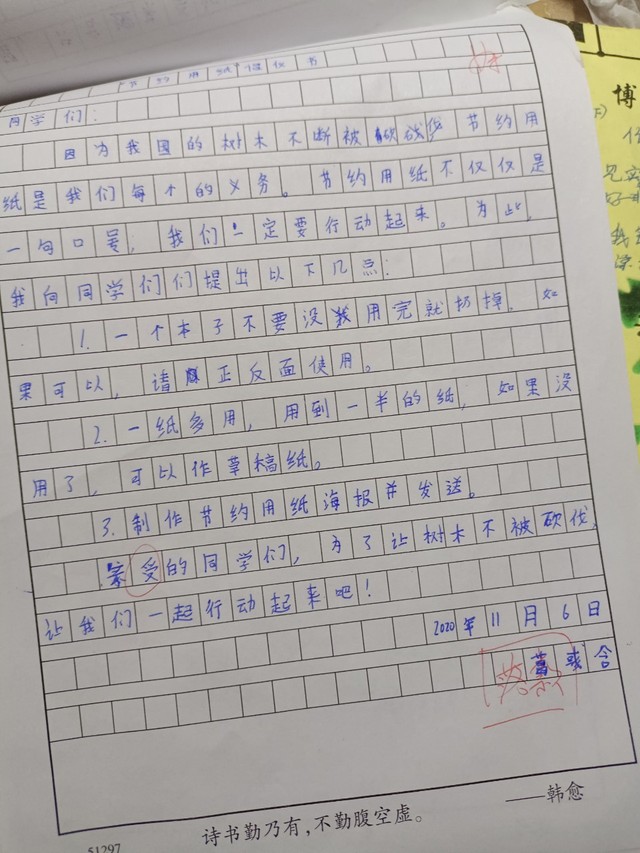 节约用纸倡议书
同学们：
因为我国的树木不断被砍伐 节约用
纸是我们每个的义务。节约用纸不仅仅是
一句口号，我们一定要行动起来。为此，
我向同学们们提出以下几点：
1.一个本子不要没用完就扔掉．如
果可以，请正反面使用。
2.一纸多用，用到一半的纸，如果没
用了，可以作草稿纸。
3.制作节约用纸海报并发送。
亲受的同学们，为了让树木不被砍伐，
让我们一起行动起来吧！
2020年11月6日
落款
诗书勤乃有，不勤腹空虚。
——韩愈
51297
博